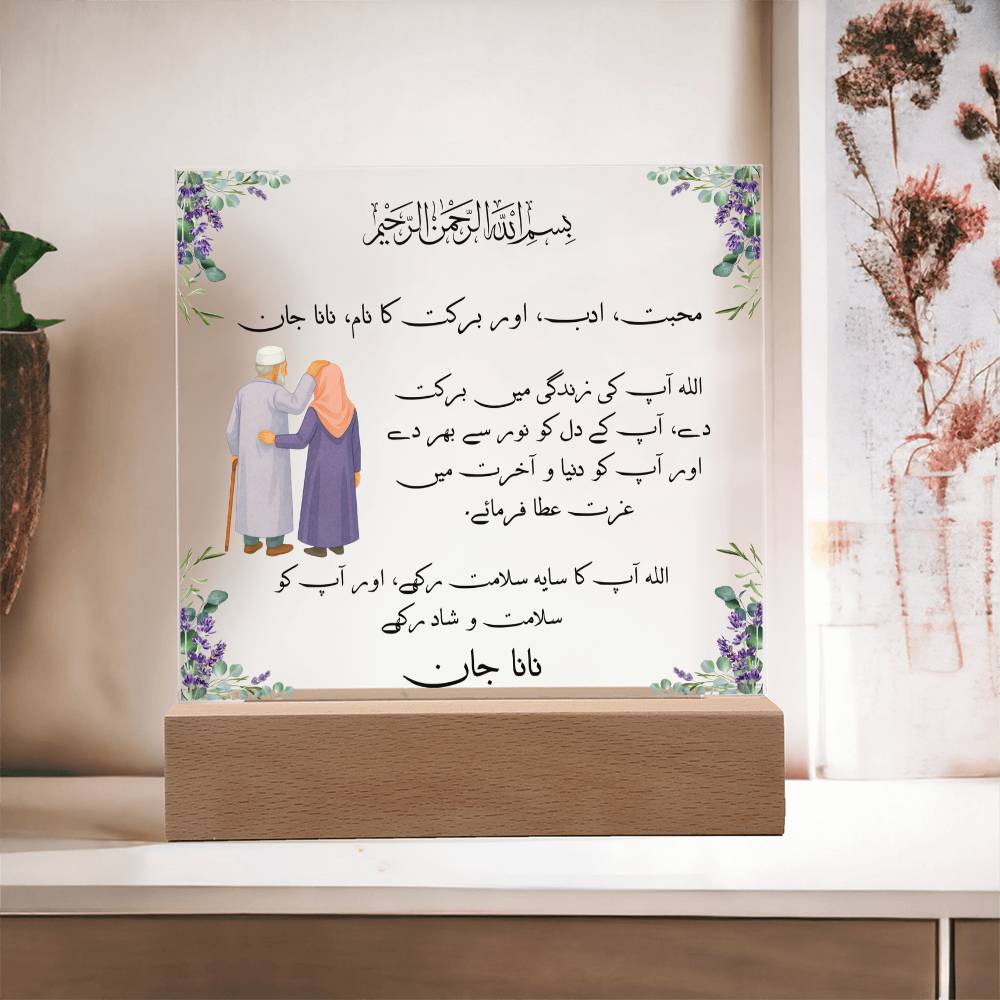 بِسْمِ اللهِ الرَّحْمٰنِ الرَّحِيْمِ
محبت، ادب، اور برکت کا نام، نانا جان
الله آپ کی زندگی میں برکت
دے، آپ کے دل کو نور سے بھر دے
اور آپ کو دنیا و آخرت میں
عزت عطا فرمائے.
الله آپ کا سایہ سلامت رکھے، اور آپ کو
سلامت و شاد رکھے
نانا جان